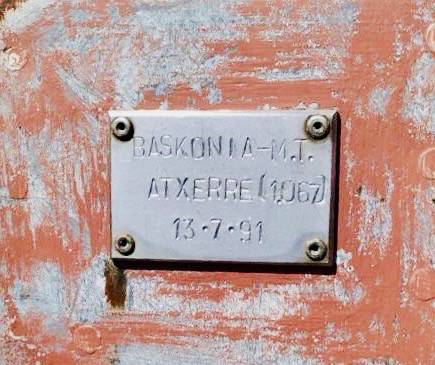 BASKONIA-M.T.
ATXERRE (1.067)
13·7·91